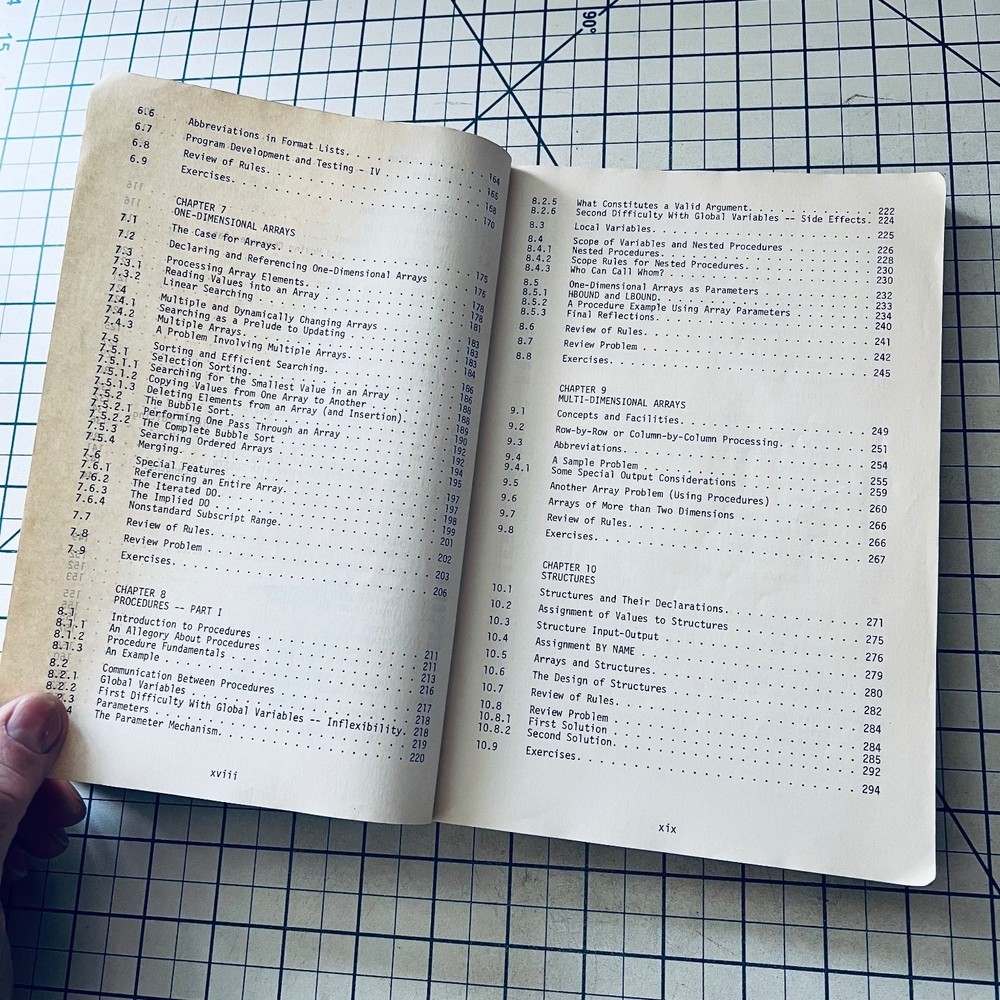 6.6 Abbreviations in Format Lists. 164
6.7 Program Development and Testing - IV 165
6.8 Review of Rules. 168
6.9 Exercises. 170
CHAPTER 7
ONE-DIMENSIONAL ARRAYS
7.1 The Case for Arrays. 175
7.2 Declaring and Referencing One-Dimensional Arrays 176
7.3 Processing Array Elements. 178
7.3.1 Reading Values into an Array 178
7.3.2 Linear Searching 181
7.4 Multiple and Dynamically Changing Arrays 183
7.4.1 Searching as a Prelude to Updating 183
7.4.2 Multiple Arrays. 183
7.4.3 A Problem Involving Multiple Arrays. 184
7.5 Sorting and Efficient Searching. 186
7.5.1 Selection Sorting. 186
7.5.1.1 Searching for the Smallest Value in an Array 188
7.5.1.2 Copying Values from One Array to Another 188
7.5.1.3 Deleting Elements from an Array (and Insertion). 189
7.5.2 The Bubble Sort. 190
7.5.2.1 Performing One Pass Through an Array 192
7.5.2.2 The Complete Bubble Sort 192
7.5.3 Searching Ordered Arrays 194
7.5.4 Merging. 195
7.6 Special Features 197
7.6.1 Referencing an Entire Array. 197
7.6.2 The Iterated DO. 198
7.6.3 The Implied DO 199
7.6.4 Nonstandard Subscript Range. 201
7.7 Review of Rules. 202
7.8 Review Problem 203
7.9 Exercises. 206
CHAPTER 8
PROCEDURES -- PART I
8.1 Introduction to Procedures 211
8.1.1 An Allegory About Procedures 211
8.1.2 Procedure Fundamentals 213
8.1.3 An Example 216
8.2 Communication Between Procedures 217
8.2.1 Global Variables 218
8.2.2 First Difficulty With Global Variables -- Inflexibility. 218
2.3 Parameters 219
4 The Parameter Mechanism. 220
xviii
8.2.5 What Constitutes a Valid Argument. 222
8.2.6 Second Difficulty With Global Variables -- Side Effects. 224
8.3 Local Variables. 225
8.4 Scope of Variables and Nested Procedures 226
8.4.1 Nested Procedures. 228
8.4.2 Scope Rules for Nested Procedures. 230
8.4.3 Who Can Call Whom? 230
8.5 One-Dimensional Arrays as Parameters 232
8.5.1 HBOUND and LBOUND. 233
8.5.2 A Procedure Example Using Array Parameters 234
8.5.3 Final Reflections. 240
8.6 Review of Rules. 241
8.7 Review Problem 242
8.8 Exercises. 245
CHAPTER 9
MULTI-DIMENSIONAL ARRAYS
9.1 Concepts and Facilities. 249
9.2 Row-by-Row or Column-by-Column Processing. 251
9.3 Abbreviations. 254
9.4 A Sample Problem 255
9.4.1 Some Special Output Considerations 259
9.5 Another Array Problem (Using Procedures) 260
9.6 Arrays of More than Two Dimensions 266
9.7 Review of Rules. 266
9.8 Exercises. 267
CHAPTER 10
STRUCTURES
10.1 Structures and Their Declarations. 271
10.2 Assignment of Values to Structures 275
10.3 Structure Input-Output 276
10.4 Assignment BY NAME 279
10.5 Arrays and Structures. 280
10.6 The Design of Structures 282
10.7 Review of Rules. 284
10.8 Review Problem 284
10.8.1 First Solution 285
10.8.2 Second Solution. 292
10.9 Exercises. 294
xix
90°
15